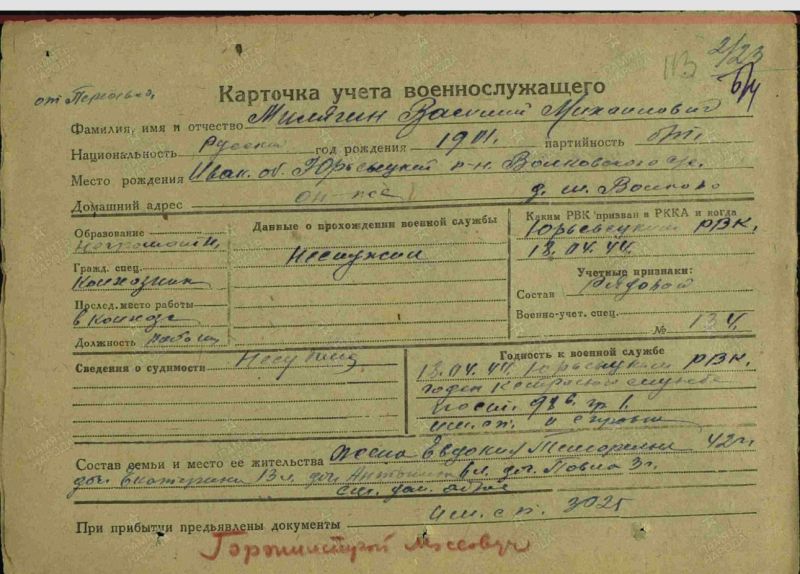 113 2/23
от Пересыльн.
Карточка учета военнослужащего
6/4
Фамилия, имя и отчество Милягин Василий Михайлович
Национальность Русский год рождения 1901. партийность б/п.
Место рождения Ивак. об. Юрьевецкий р-н. Волковского с/с.
Домашний адрес он-же д. Волково
Образование Неграмотн.
Гражд. спец. Колхозник
Послед. место работы в колхозе
Должность
Данные о прохождении военной службы
Неслужил
Каким РВК призван в РККА и когда
Юрьевецким РВК.
18.04.44.
Учетные признаки:
Состав Рядовой
Военно-учет. спец.
№ 134
Сведения о судимости Несудим
Годность к военной службе
18.04.44. Юрьевецким РВК.
годен к службе
гр 1.
Состав семьи и место ее жительства жена Евдокия 42 г.
доч. Екатерина 13 л. доч. Антонина 6 л. доч. 3 г.
При прибытии предъявлены документы